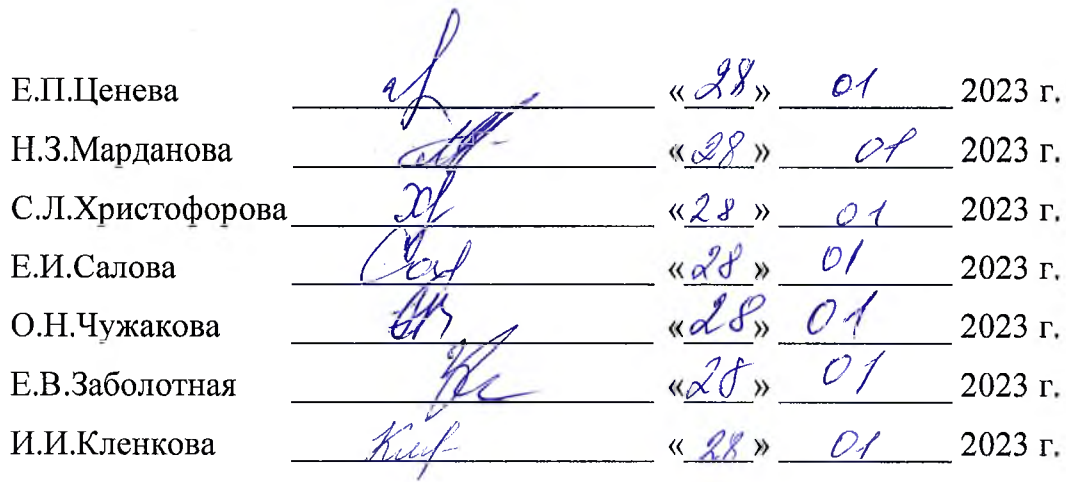 Е.П.Ценева «28» 01 2023 г.
Н.З.Марданова «28» 01 2023 г.
С.Л.Христофорова «28» 01 2023 г.
Е.И.Салова «28» 01 2023 г.
О.Н.Чужакова «28» 01 2023 г.
Е.В.Заболотная «28» 01 2023 г.
И.И.Кленкова «28» 01 2023 г.